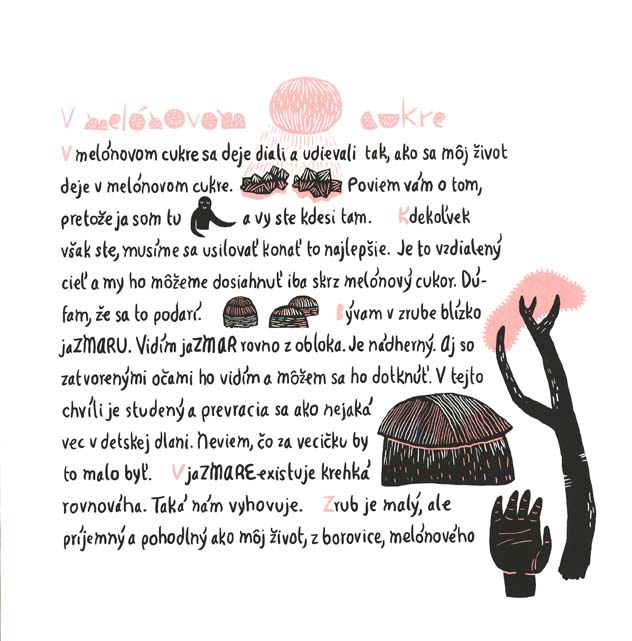 V melónovom cukre
V melónovom cukre sa deje diali a udievali tak, ako sa môj život
deje v melónovom cukre. Poviem vám o tom,
pretože ja som tu a vy ste kdesi tam. Kdekoľvek
však ste, musíme sa usilovať konať to najlepšie. Je to vzdialený
cieľ a my ho môžeme dosiahnuť iba skrz melónový cukor. Dú-
fam, že sa to podarí. Bývam v zrube blízko
jaZMARU. Vidím jaZMAR rovno z obloka. Je nádherný. Aj so
zatvorenými očami ho vidím a môžem sa ho dotknúť. V tejto
chvíli je studený a prevracia sa ako nejaká
vec v detskej dlani. Neviem, čo za vecičku by
to malo byť. V jaZMARE existuje krehká
rovnováha. Taká nám vyhovuje. Zrub je malý, ale
príjemný a pohodlný ako môj život, z borovice, melónového